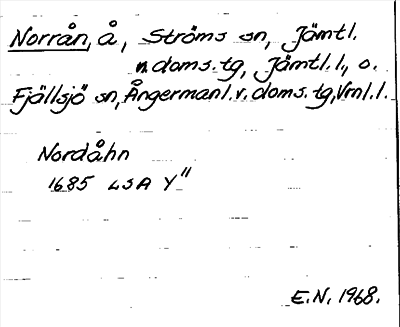 Norrån, å, Ströms sn, Jämtl.
n. doms.tg, Jämtl. l., o.
Fjällsjö sn, Ångermanl. v. doms.tg, Vrnl. l.
Nordåhn
1685 LSA Y"
E.N. 1968.